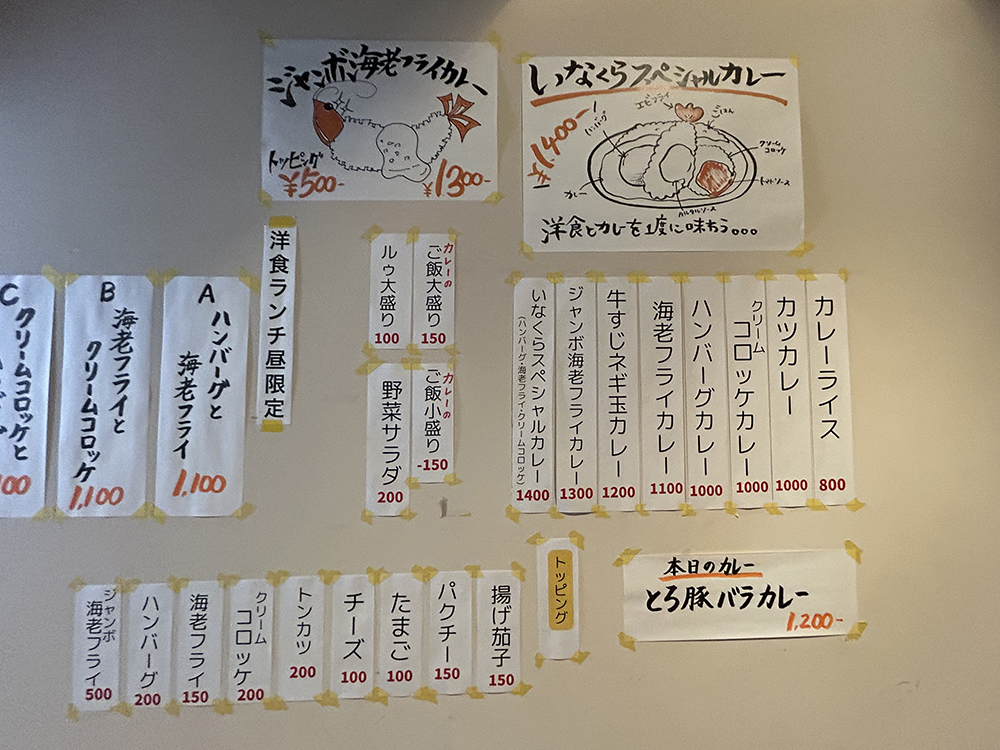 ジャンボ海老フライカレー
トッピング
¥500-
¥1300-
いなくらスペシャルカレー
¥1400-
ハンバーグ
エビフライ
ごはん
クリーム
コロッケ
トマトソース
タルタルソース
カレー
洋食とカレーを1度に味わう。。。
カレーライス
800
カツカレー
1000
クリーム
コロッケカレー
1000
ハンバーグカレー
1000
海老フライカレー
1100
牛すじネギ玉カレー
1200
ジャンボ海老フライカレー
1300
いなくらスペシャルカレー
(ハンバーグ・海老フライ・クリームコロッケ)
1400
カレーの
ご飯大盛り
150
ルゥ大盛り
100
カレーの
ご飯小盛り
-150
野菜サラダ
200
洋食ランチ昼限定
A
ハンバーグと
海老フライ
1,100
B
海老フライと
クリームコロッケ
1,100
C
クリームコロッケと
00
本日のカレー
とろ豚バラカレー
1,200-
トッピング
揚げ茄子
150
パクチー
150
たまご
100
チーズ
100
トンカツ
200
クリーム
コロッケ
200
海老フライ
150
ハンバーグ
200
ジャンボ
海老フライ
500